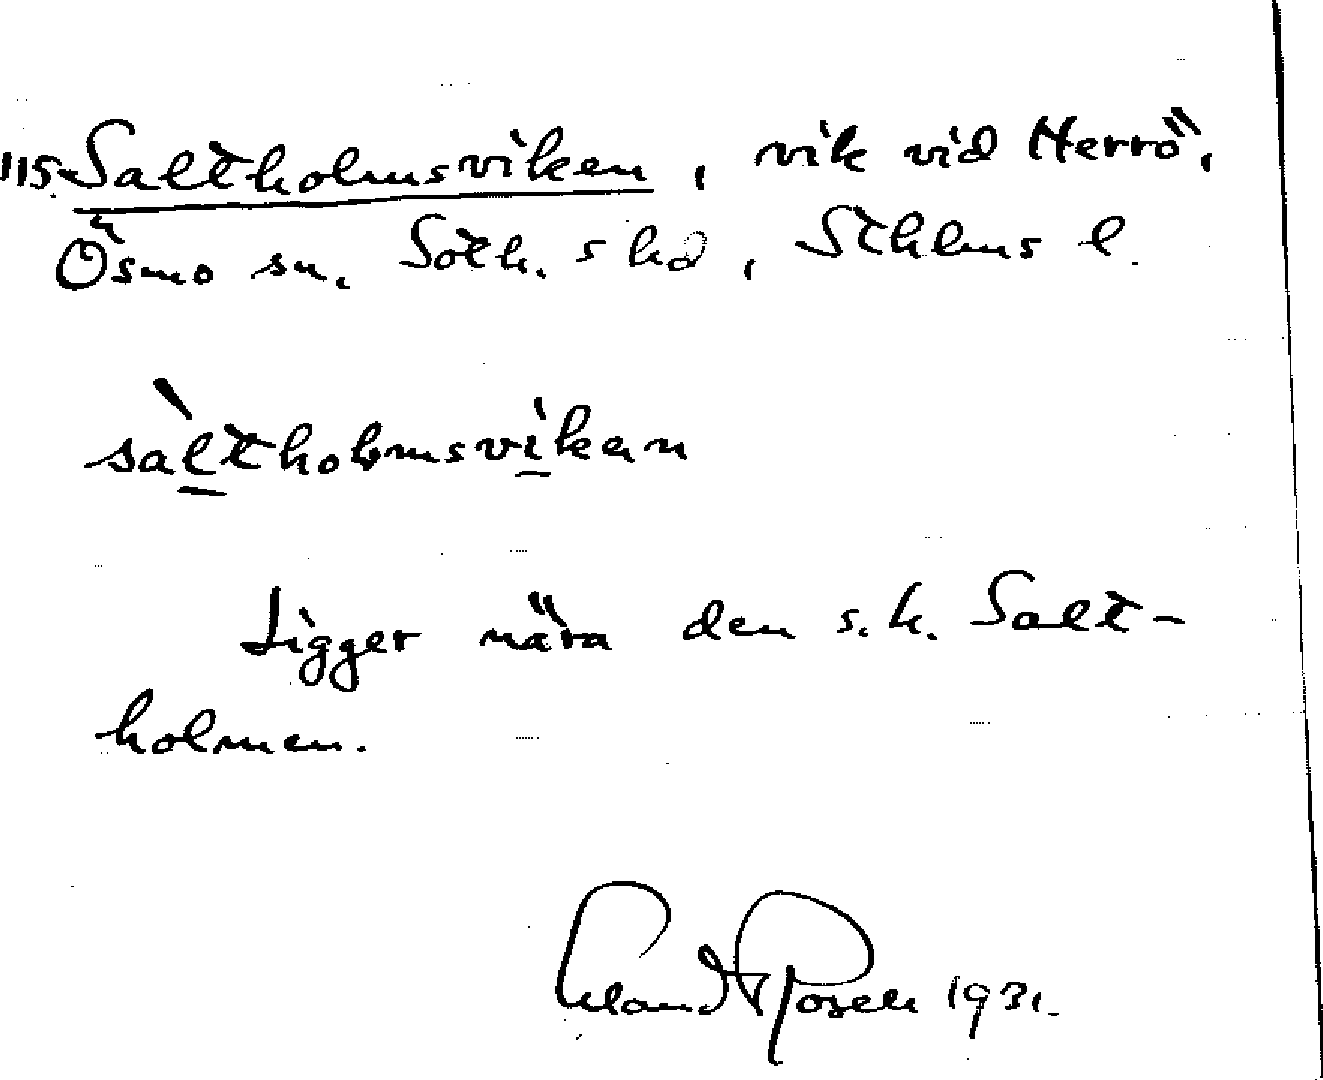 115. Saltholmsviken, vik vid Herrö,
Ösmo sn. Soth. shd, Sthlms l.
sàltholmsvikan
Ligger nära den s.k. Salt-
holmen.
Erland Rosell 1931.